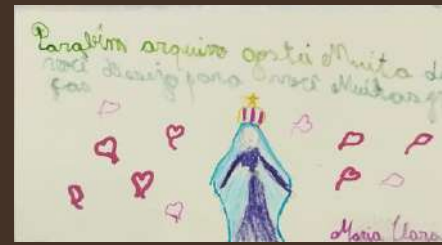 Parabéns arquivo gostei Muito de
você desejo para você Muitas
ças
Maria Clara